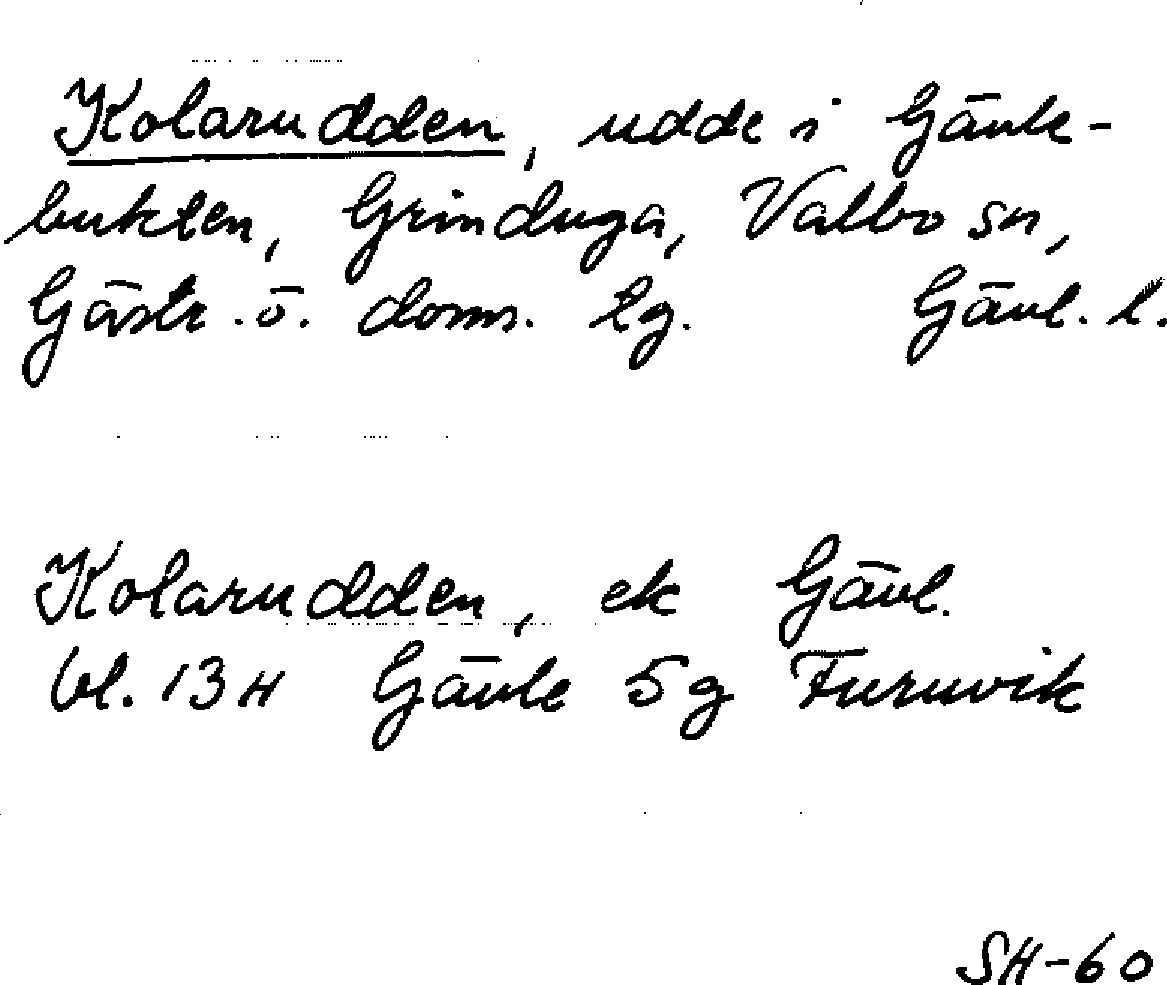 Kolarudden, udde i Gävle-
bukten, Grinduga, Valbo sn,
Gästr. ö. doms. tg. Gävl. l.
Kolarudden, ek Gävl.
bl. 13H Gävle 5g Furuvik
SH-60